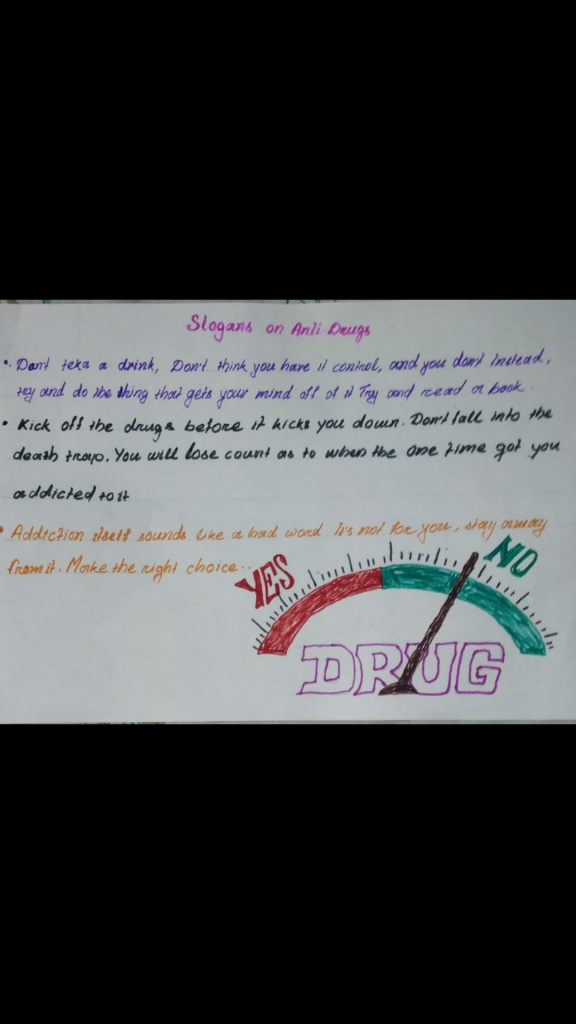 Slogans on Anti Drugs
• Don't teka a drink, Don't think you have it control, and you don't instead,
try and do the thing that gets your mind off of it Try and read a book.
• Kick off the drugs before it kicks you down. Don't fall into the
death trap. You will lose count as to when the one time got you
addicted to it
• Addiction itself sounds like a bad word It's not for you, stay away
from it. Make the right choice..
YES
NO
DRUG